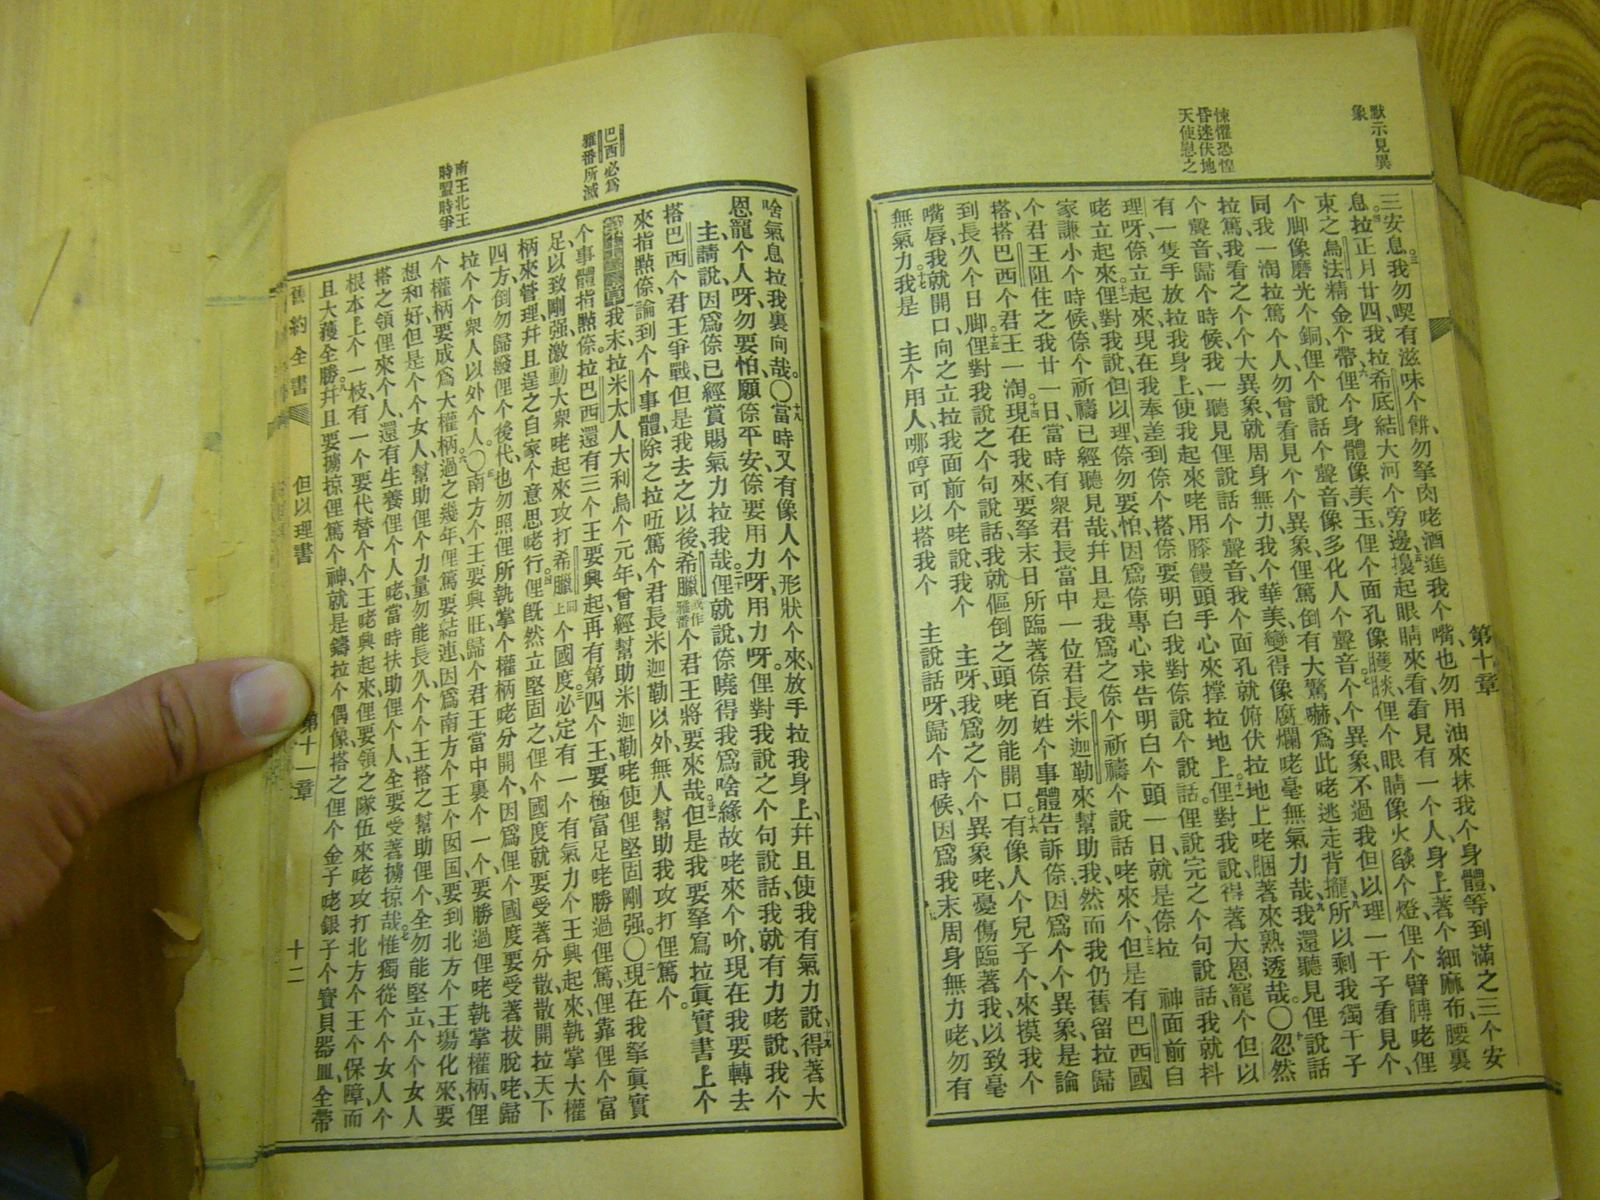 默示見異
象
悚懼恐惶
昏迷伏地
天使慰之
第十章
三安息我勿喫有滋味个餅勿拏肉咾酒進我个嘴也勿用油來抹我个身體等到滿之三个安
息拉正月廿四我拉希底結大河个旁邊擡起眼睛來看看見有一个人身上著个細麻布腰裏
束之烏法精金个帶俚个身體像美玉俚个面孔像矐睒俚个眼睛像火燄个燈俚个臂膊咾俚
个脚像磨光个銅俚个說話个聲音像多化人个聲音个个異象不過我但以理一干子看見个
同我一淘拉篤个人勿曾看見个个異象俚篤倒有大驚嚇爲此咾逃走背攏所以剩我獨干子
拉篤我看之个个大異象就周身無力我个華美變得像腐爛咾毫無氣力哉我還聽見俚說話
个聲音歸个時候我一聽見俚說話个聲音我个面孔就俯伏拉地上咾睏著來熟透哉〇忽然
有一隻手放拉我身上使我起來咾用膝饅頭手心來撐拉地上俚對我說得著大恩寵个但以
理呀倷立起來現在我奉差到倷个搭倷要明白我對倷說个說話俚說完之个句說話我就抖
咾立起來俚對我說但以理倷勿要怕因爲倷專心求告明白个頭一日就是倷拉 神面前自
家謙小个時候倷个祈禱已經聽見哉幷且是我爲之倷个祈禱个說話咾來个但是有巴西國
个君王阻住之我廿一日富時有衆君長當中一位君長米迦勒來幫助我然而我仍舊留拉歸
搭搭巴西个君王一淘現在我來要拏末日所臨著倷百姓个事體告訴倷因爲个个異象是論
到長久个日脚俚對我說之个句說話我就傴倒之頭咾勿能開口有像人个兒子个來摸我个
嘴唇我就開口向之立拉我面前个咾說我个 主呀我爲之个个異象咾憂傷臨著我以致毫
無氣力我是 主个用人哪哼可以搭我个 主說話呀歸个時候因爲我末周身無力咾勿有
巴西必爲
雅番所滅
南王北王
時盟時爭
啥氣息拉我裏向哉〇當時又有像人个形狀个來放手拉我身上幷且使我有氣力說得著大
恩寵个人呀勿要怕願倷平安倷要用力呀用力呀俚對我說之个句說話我就有力咾說我个
主請說因爲倷已經賞賜氣力拉我哉俚就說倷曉得我爲啥緣故咾來个吤現在我要轉去
搭巴西个君王爭戰但是我去之以後希臘或作雅番个君王將要來哉但是我要拏寫拉眞實書上个
來指點倷論到个个事體除之拉㕶篤个君長米迦勒以外無人幫助我攻打俚篤个
我末拉米太人大利烏个元年曾經幫助米迦勒咾使俚堅固剛强〇現在我拏眞實
个事體指點倷拉巴西還有三个王要興起再有第四个王要極富足咾勝過俚篤俚靠俚个富
足以致剛强激動大衆咾起來攻打希臘同上个國度必定有一个有氣力个王興起來執掌大權
柄來管理幷且逞之自家个意思咾行俚旣然立堅固之俚个國度就要受著分散散開拉天下
四方倒勿歸廢俚个後代也勿照俚所執掌个權柄咾分開个因爲俚个國度要受著拔脫咾歸
拉个个衆人以外个人〇南方个王要興旺歸个君王當中裏个一个要勝過俚咾執掌權柄俚
个權柄要成爲大權柄過之幾年俚篤要結連因爲南方个王个囡囯要到北方个王塲化來要
想和好但是个个女人幫助俚个力量勿能長久个个王搭之幫助俚个全勿能堅立个个女人
搭之領俚來个人還有生養俚个人咾當時扶助俚个人全要受著擄掠哉惟獨從个个女人个
根本上个一枝有一个要代替个个王咾興起來俚要領之隊伍來咾攻打北方个王个保障而
且大穫全勝幷且要擄掠俚篤个神就是鑄拉个偶像搭之俚个金子咾銀子个寶貝器皿全帶
舊約全書
但以理書
第十一章
十二